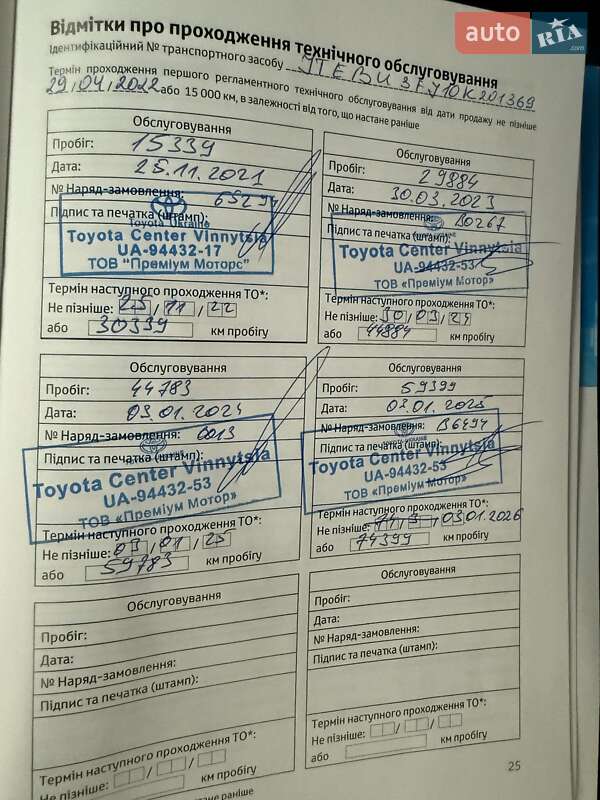 auto RIA.com
Відмітки про проходження технічного обслуговування
Ідентифікаційний № транспортного засобу JTEBU3FJ10K201369
Термін проходження першого регламентного технічного обслуговування від дати продажу не пізніше
29,04,2022 або 15 000 км, в залежності від того, що настане раніше
Обслуговування
Пробіг: 15339
Дата: 25.11.2021
№ Наряд-замовлення:
Підпис та печатка (штамп):
Toyota Ukraine
Toyota Center Vinnytsia
UA-94432-17
ТОВ "Преміум Моторс"
Термін наступного проходження ТО*:
Не пізніше: 25/11/22
або 30339 км пробігу
Обслуговування
Пробіг: 29884
Дата: 30.03.2023
№ Наряд-замовлення: B0267
Підпис та печатка (штамп):
Toyota Center Vinnytsia
UA-94432-53
ТОВ «Преміум Мотор»
Термін наступного проходження ТО*:
Не пізніше: 30/03/24
або 44884 км пробігу
Обслуговування
Пробіг: 44783
Дата: 03.01.2024
№ Наряд-замовлення:
Підпис та печатка (штамп):
Toyota Center Vinnytsia
UA-94432-53
ТОВ «Преміум Мотор»
Термін наступного проходження ТО*:
Не пізніше: 03/01/25
або 59783 км пробігу
Обслуговування
Пробіг: 59399
Дата: 03.01.2025
№ Наряд-замовлення:
Підпис та печатка (штамп):
Toyota Center Vinnytsia
UA-94432-53
ТОВ «Преміум Мотор»
Термін наступного проходження ТО*:
Не пізніше: 03.01.2026
або 74399 км пробігу
Обслуговування
Пробіг:
Дата:
№ Наряд-замовлення:
Підпис та печатка (штамп):
Термін наступного проходження ТО*:
Не пізніше: / /
або км пробігу
Обслуговування
Пробіг:
Дата:
№ Наряд-замовлення:
Підпис та печатка (штамп):
Термін наступного проходження ТО*:
Не пізніше: / /
або км пробігу
настане раніше
25